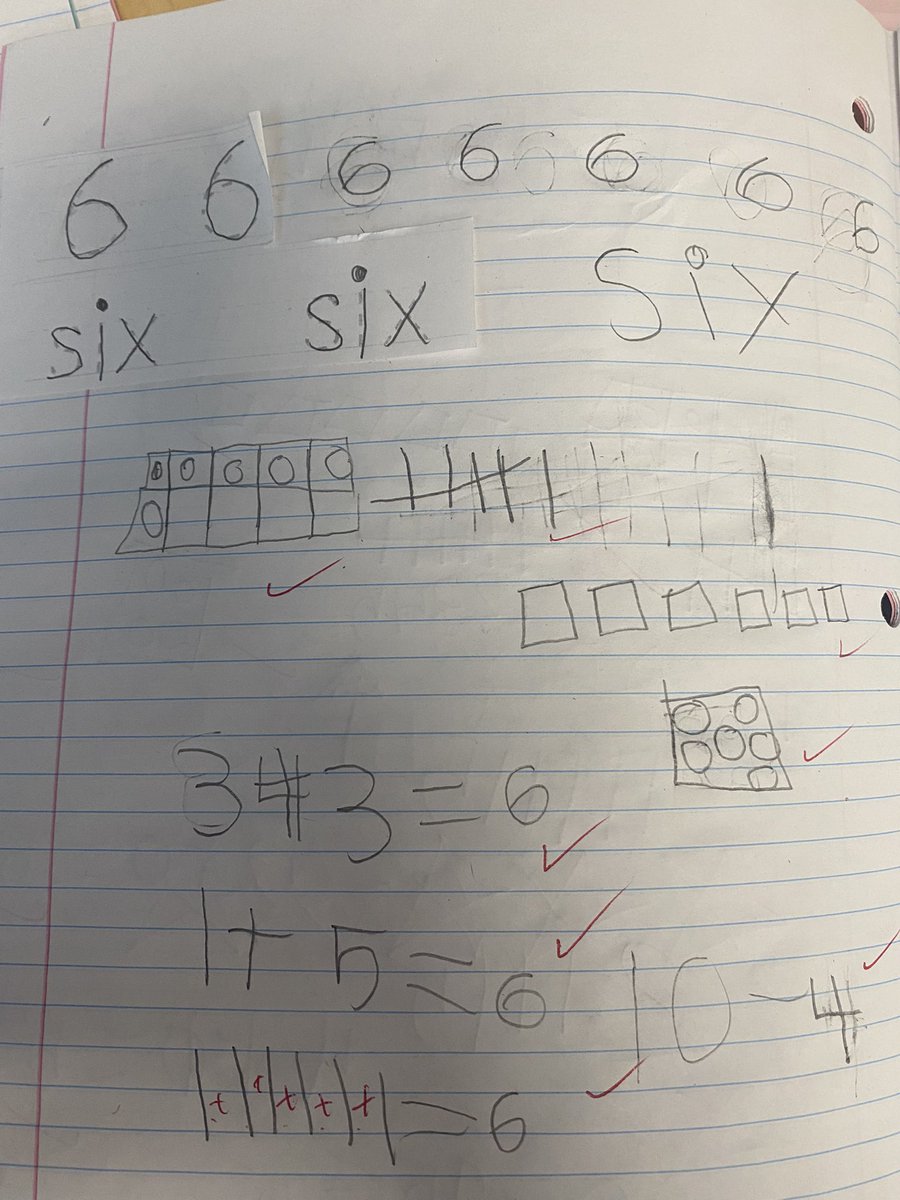 6 6 6 6 6 6 6
six six six
3 + 3 = 6
1 + 5 = 6
10 - 4
1 + 1 + 1 + 1 + 1 + 1 = 6